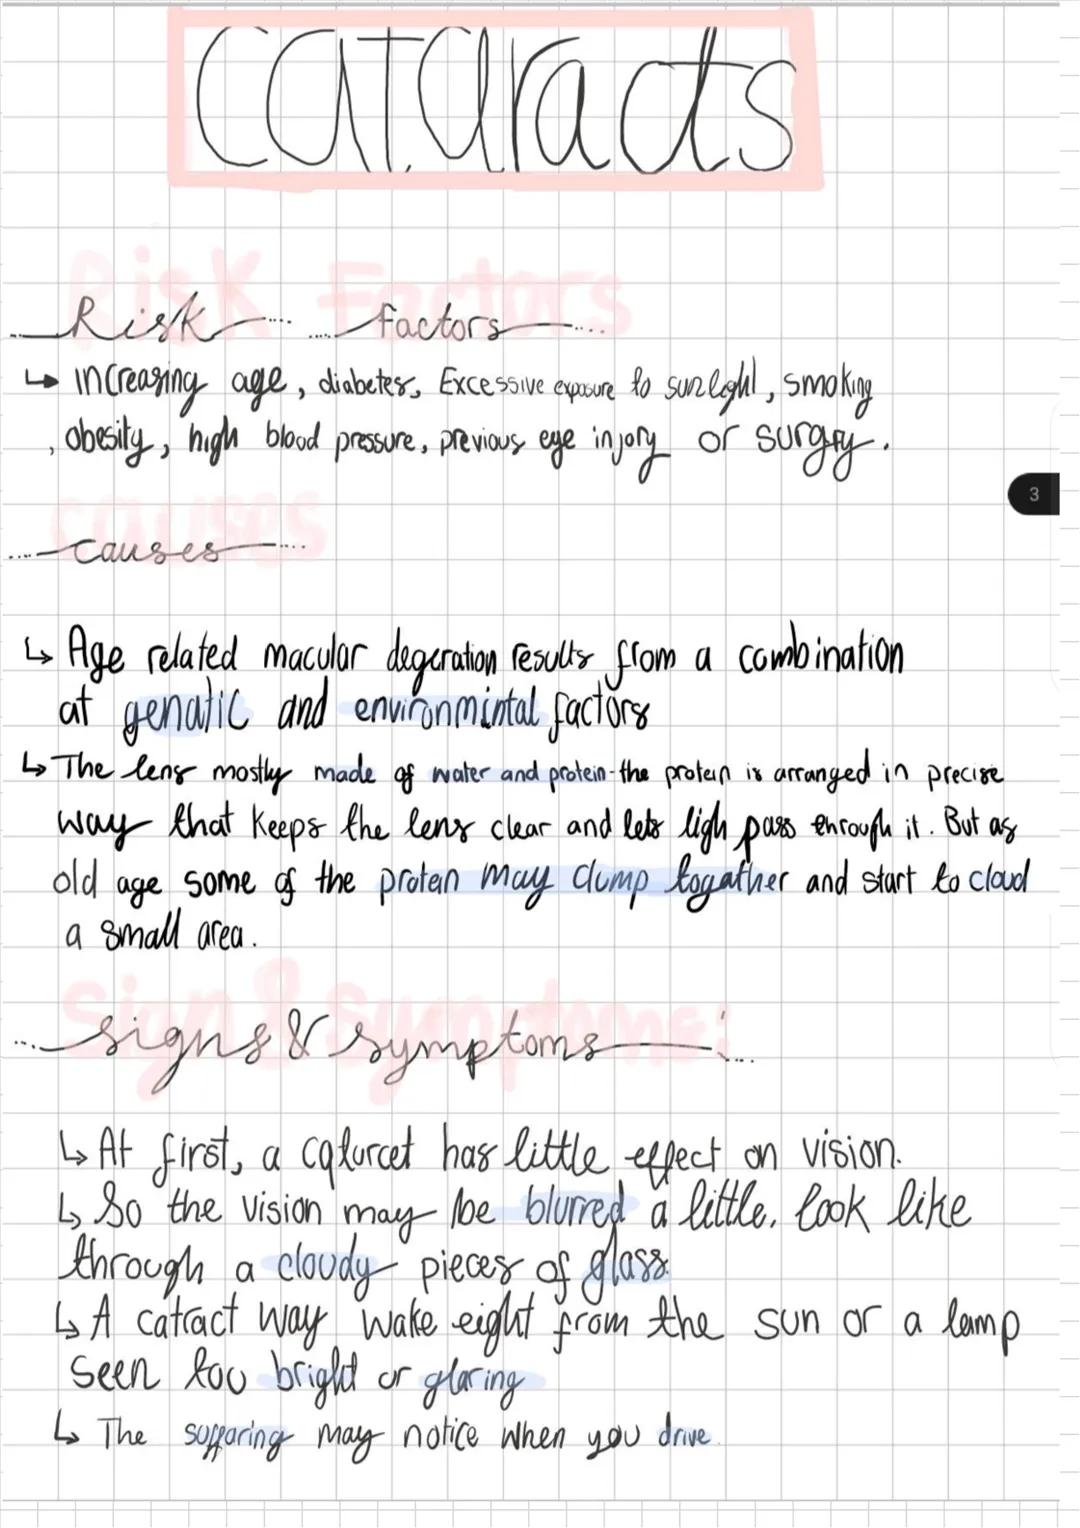 cataracts
Risk Factors
Risk factors
↳ increasing age, diabetes, Excessive exposure to sunlight, smoking
, obesity, high blood pressure, previous eye injory or surgry.
3
causes
causes
↳ Age related macular degeration results from a combination
at genatic and environmintal factors
↳ The lens mostly made of water and protein-the protein is arranged in precise
way that keeps the lens clear and lets ligh pass through it. But as
old age some of the protein may clump togather and start to cloud
a small area.
Sign & Symptoms:
signs & symptoms
↳ At first, a caturcet has little effect on vision.
↳ So the vision may be blurred a little, look like
through a cloudy pieces of glass.
↳ A catract way wake eight from the sun or a lamp
seen too bright or glaring
↳ The suffaring may notice when you drive.